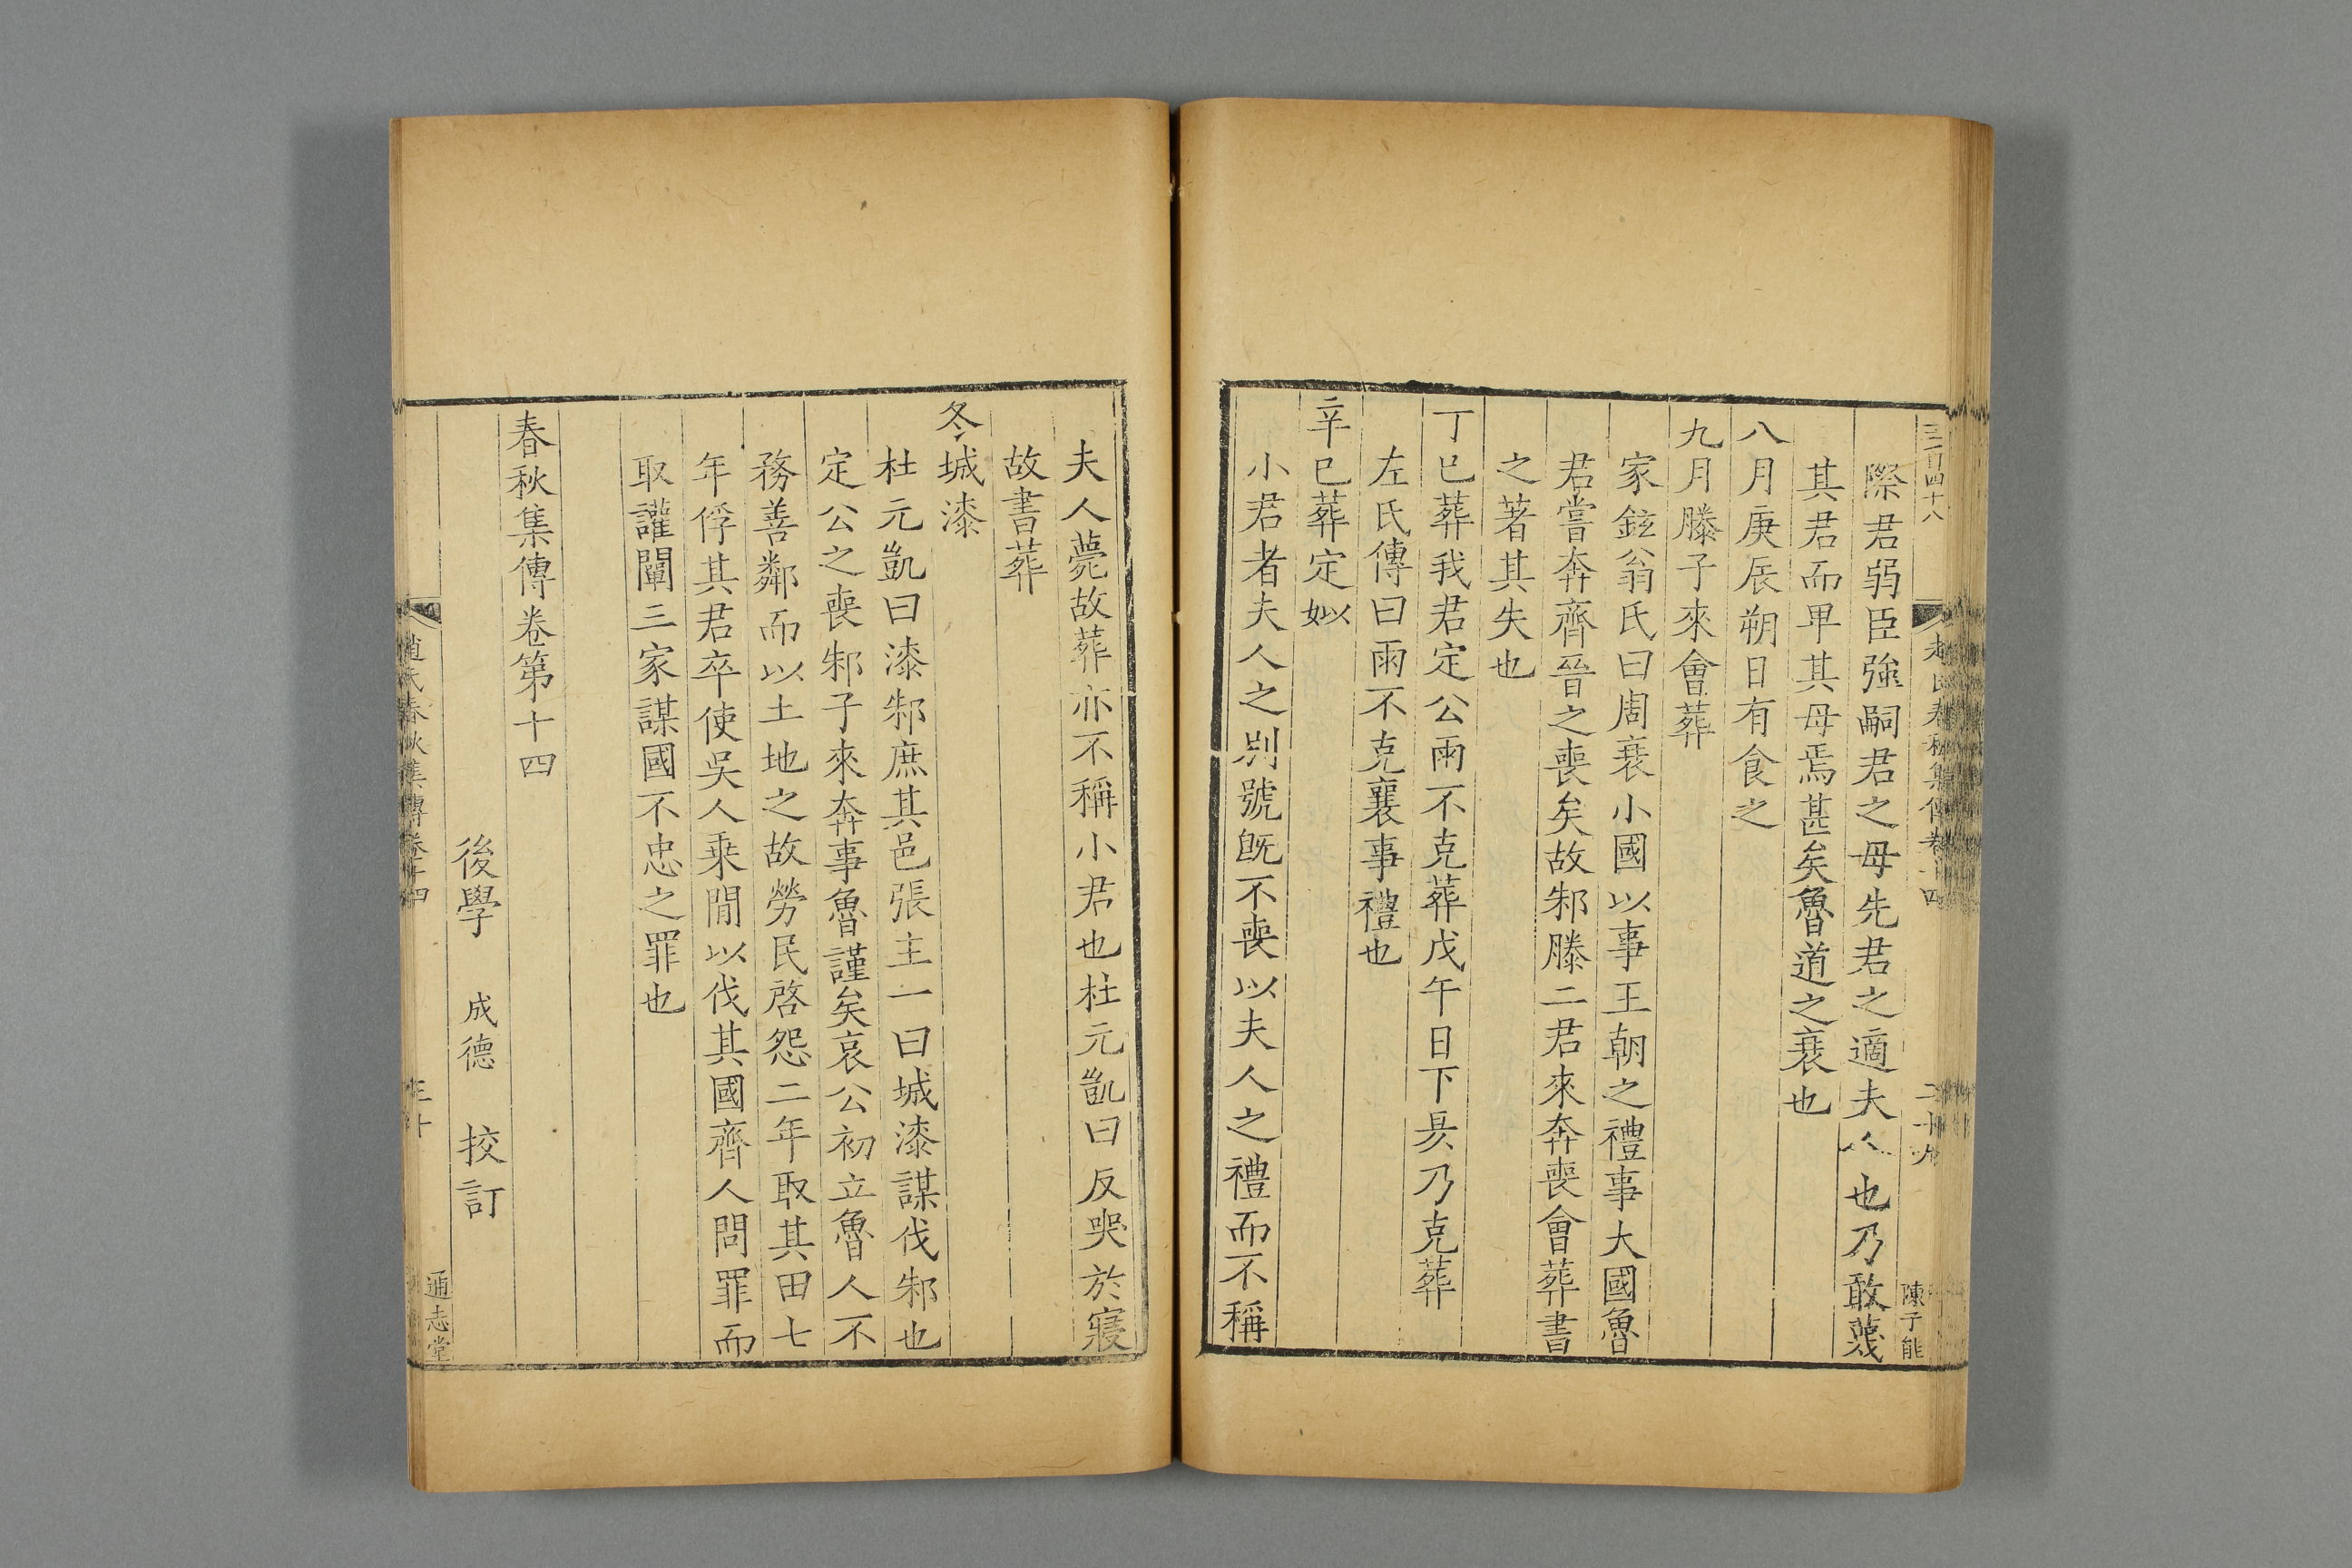 三百四十八
趙氏春秋集傳卷十四
二十九
陳子能
際君弱臣強嗣君之母先君之適夫人也乃敢蔑
其君而卑其母焉甚矣魯道之衰也
八月庚辰朔日有食之
九月滕子來會葬
家鉉翁氏曰周衰小國以事王朝之禮事大國魯
君嘗奔齊晉之喪矣故邾滕二君來奔喪會葬書
之著其失也
丁巳葬我君定公雨不克葬戊午日下昃乃克葬
左氏傳曰雨不克襄事禮也
辛巳葬定姒
小君者夫人之別號旣不喪以夫人之禮而不稱
夫人薨故葬亦不稱小君也杜元凱曰反哭於寢
故書葬
冬城漆
杜元凱曰漆邾庶其邑張主一曰城漆謀伐邾也
定公之喪邾子來奔事魯謹矣哀公初立魯人不
務善鄰而以土地之故勞民啓怨二年取其田七
年俘其君卒使吳人乗閒以伐其國齊人問罪而
取讙闡三家謀國不忠之罪也
春秋集傳卷第十四
後學 成德 挍訂
趙氏春秋集傳卷十四
三十
通志堂